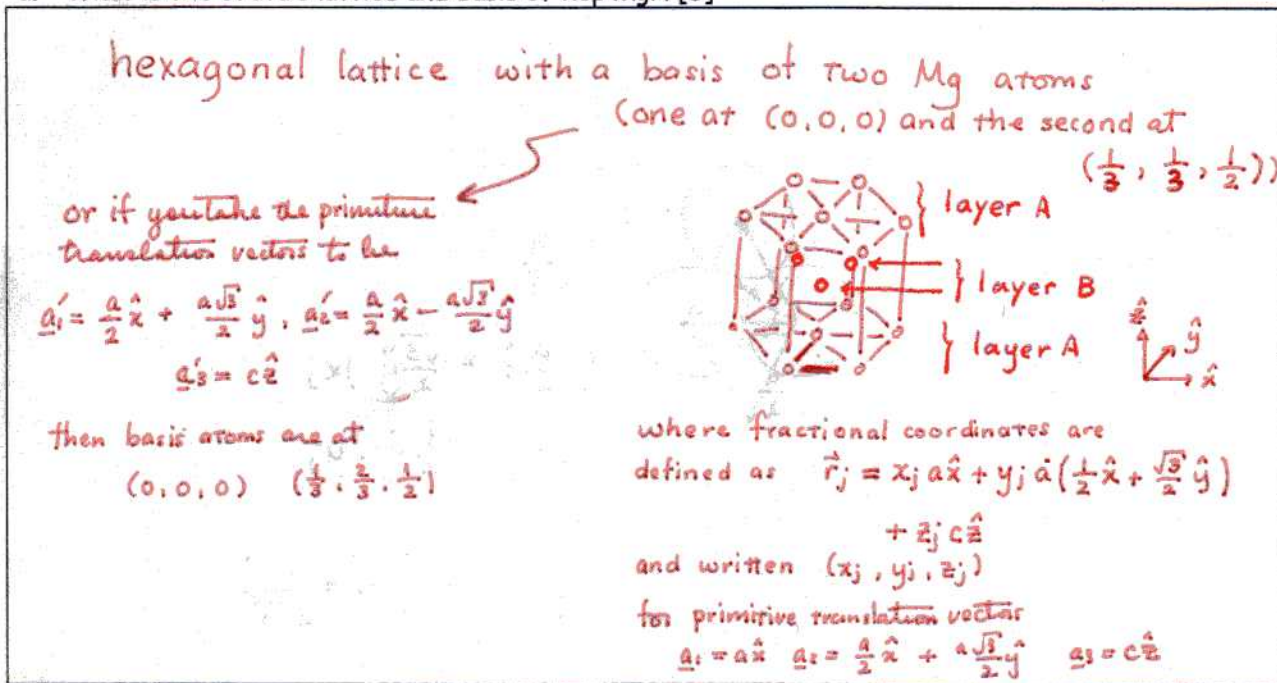 hexagonal lattice with a basis of two Mg atoms
(one at (0,0,0) and the second at
(1/3, 1/3, 1/2))
or if you take the primitive
translation vectors to be
a₁' = a/2 x̂ + a√3/2 ŷ, a₂' = a/2 x̂ − a√3/2 ŷ
a₃' = cẑ
then basis atoms are at
(0,0,0) (1/3, 2/3, 1/2)
} layer A
} layer B
} layer A
ẑ
ŷ
x̂
where fractional coordinates are
defined as r⃗ⱼ = xⱼ a x̂ + yⱼ a (1/2 x̂ + √3/2 ŷ)
+ zⱼ c ẑ
and written (xⱼ, yⱼ, zⱼ)
for primitive translation vectors
a₁ = a x̂ a₂ = a/2 x̂ + a√3/2 ŷ a₃ = cẑ